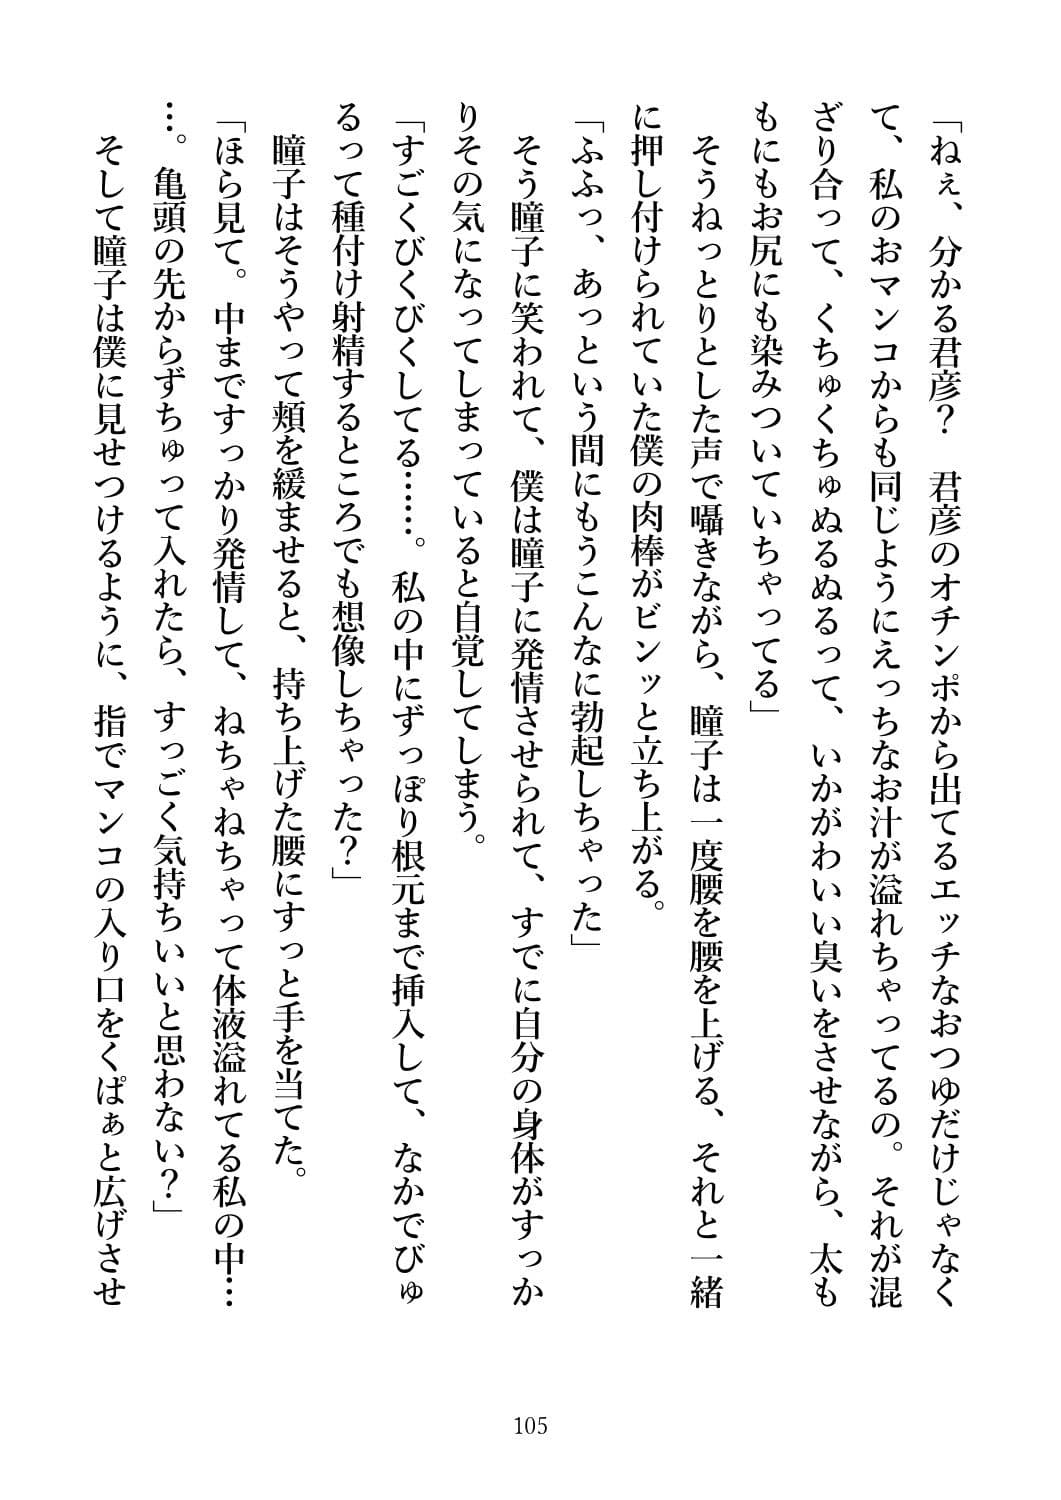 「ねぇ、分かる君彦？　君彦のオチンポから出てるエッチなおつゆだけじゃなく
て、私のおマンコからも同じようにえっちなお汁が溢れちゃってるの。それが混
ざり合って、くちゅくちゅぬるぬるって、いかがわいい臭いをさせながら、太も
もにもお尻にも染みついていちゃってる」
　そうねっとりとした声で囁きながら、瞳子は一度腰を腰を上げる、それと一緒
に押し付けられていた僕の肉棒がビンッと立ち上がる。
「ふふっ、あっという間にもうこんなに勃起しちゃった」
　そう瞳子に笑われて、僕は瞳子に発情させられて、すでに自分の身体がすっか
りその気になってしまっていると自覚してしまう。
「すごくびくびくしてる……。私の中にずっぽり根元まで挿入して、なかでびゅ
るって種付け射精するところでも想像しちゃった？」
　瞳子はそうやって頬を緩ませると、持ち上げた腰にすっと手を当てた。
「ほら見て。中まですっかり発情して、ねちゃねちゃって体液溢れてる私の中…
…。亀頭の先からずちゅって入れたら、すっごく気持ちいいと思わない？」
　そして瞳子は僕に見せつけるように、指でマンコの入り口をくぱぁと広げさせ
105